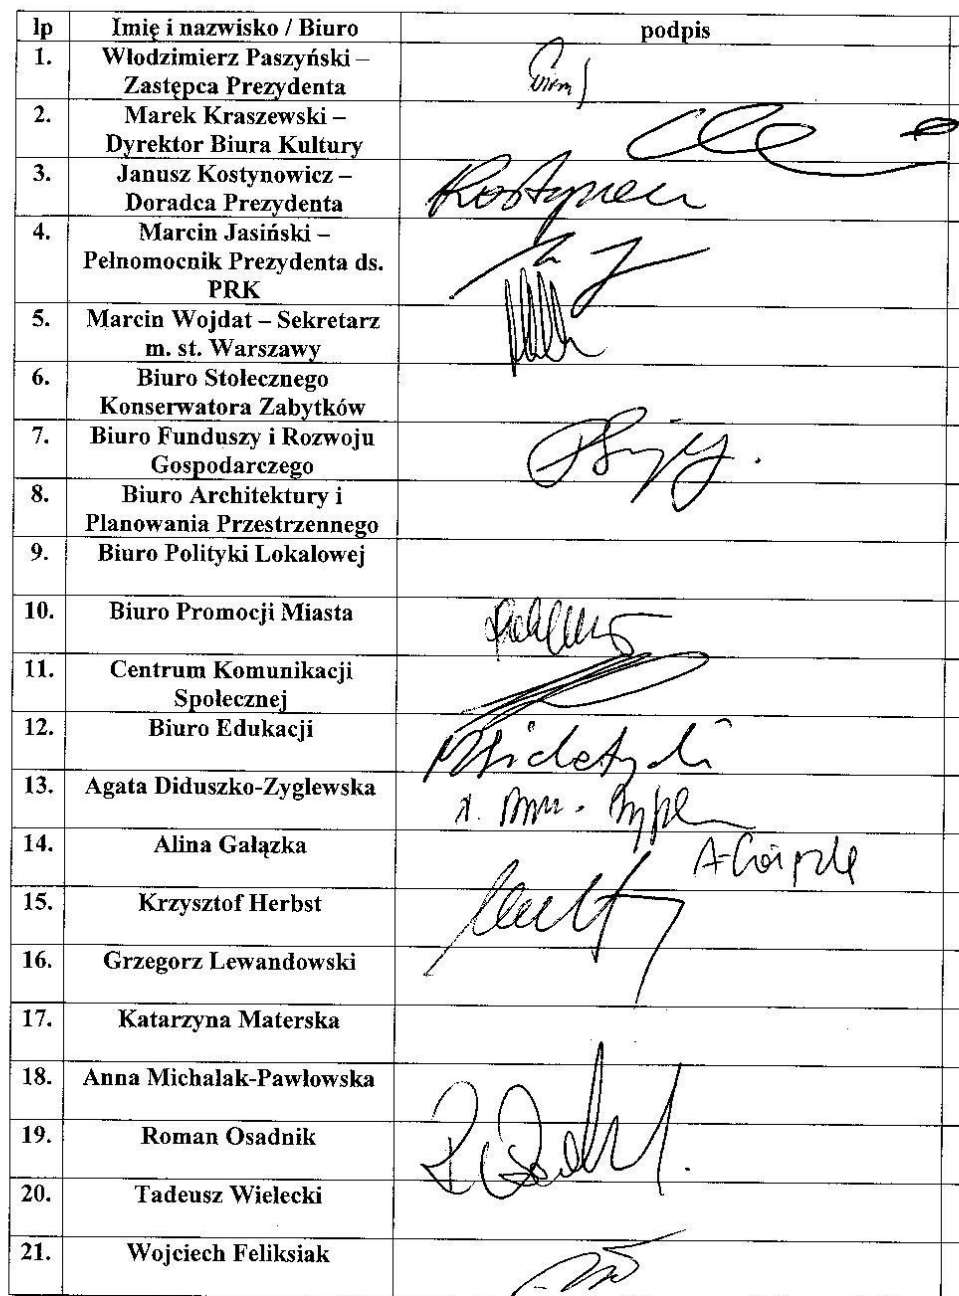 lp Imię i nazwisko / Biuro podpis
1. Włodzimierz Paszyński –
Zastępca Prezydenta
2. Marek Kraszewski –
Dyrektor Biura Kultury
3. Janusz Kostynowicz –
Doradca Prezydenta
4. Marcin Jasiński –
Pełnomocnik Prezydenta ds.
PRK
5. Marcin Wojdat – Sekretarz
m. st. Warszawy
6. Biuro Stołecznego
Konserwatora Zabytków
7. Biuro Funduszy i Rozwoju
Gospodarczego
8. Biuro Architektury i
Planowania Przestrzennego
9. Biuro Polityki Lokalowej
10. Biuro Promocji Miasta
11. Centrum Komunikacji
Społecznej
12. Biuro Edukacji
13. Agata Diduszko-Zyglewska
14. Alina Gałązka
15. Krzysztof Herbst
16. Grzegorz Lewandowski
17. Katarzyna Materska
18. Anna Michalak-Pawłowska
19. Roman Osadnik
20. Tadeusz Wielecki
21. Wojciech Feliksiak